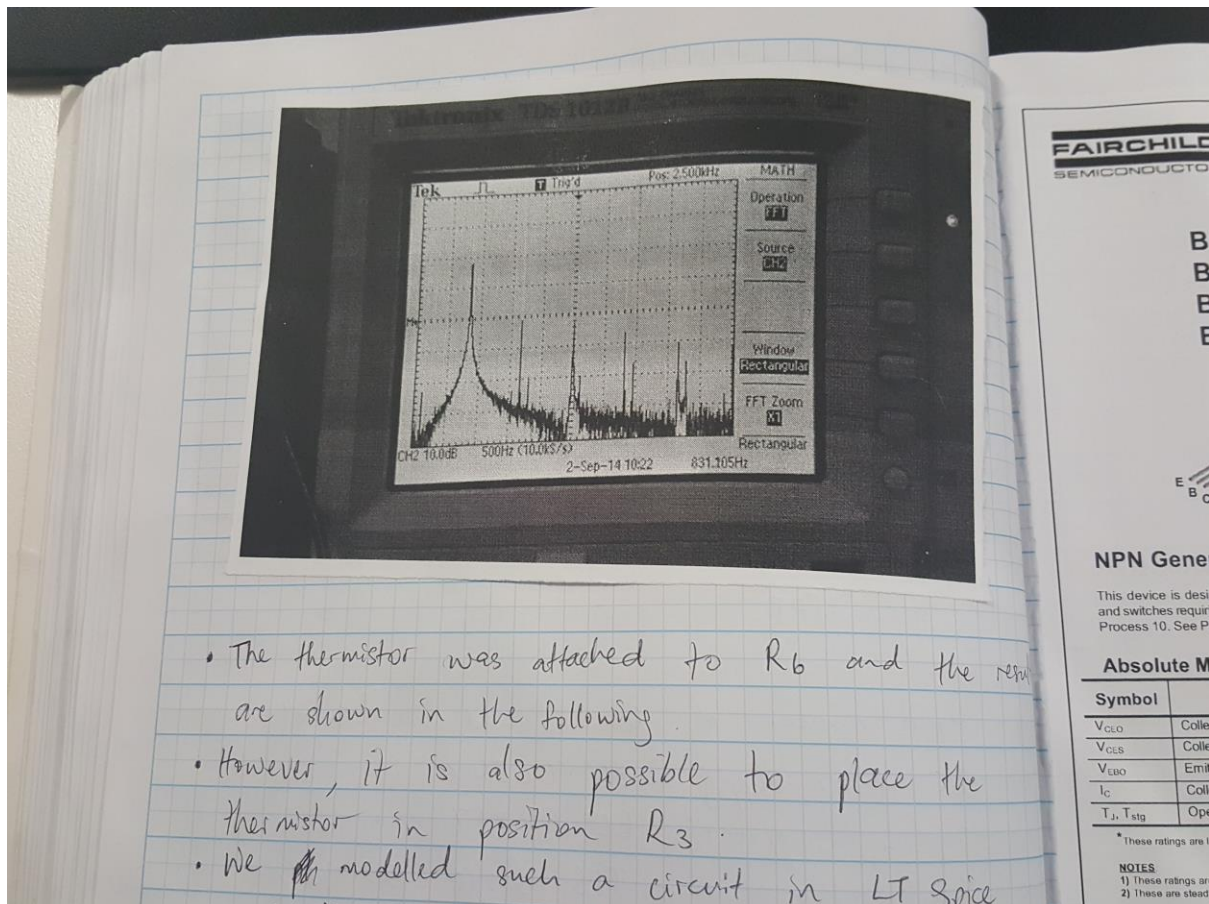 Tektronix TDS 1012B
Tek
T Trig'd
Pos: 2.500kHz
MATH
Operation
FFT
Source
CH2
Window
Rectangular
FFT Zoom
X1
Rectangular
CH2 10.0dB
500Hz (10.0kS/s)
2-Sep-14 10:22
831.105Hz
• The thermistor was attached to R6 and the
are shown in the following.
• However, it is also possible to place the
thermistor in position R3.
• We modelled such a circuit in LT Spice
FAIRCHILD
SEMICONDUCTO
B
B
B
E
B
C
NPN Gene
This device is desi
and switches requir
Process 10. See P
Absolute M
Symbol
VCEO Colle
VCES Colle
VEBO Emit
IC Coll
TJ, Tstg Ope
*These ratings are l
NOTES
1) These ratings ar
2) These are stead